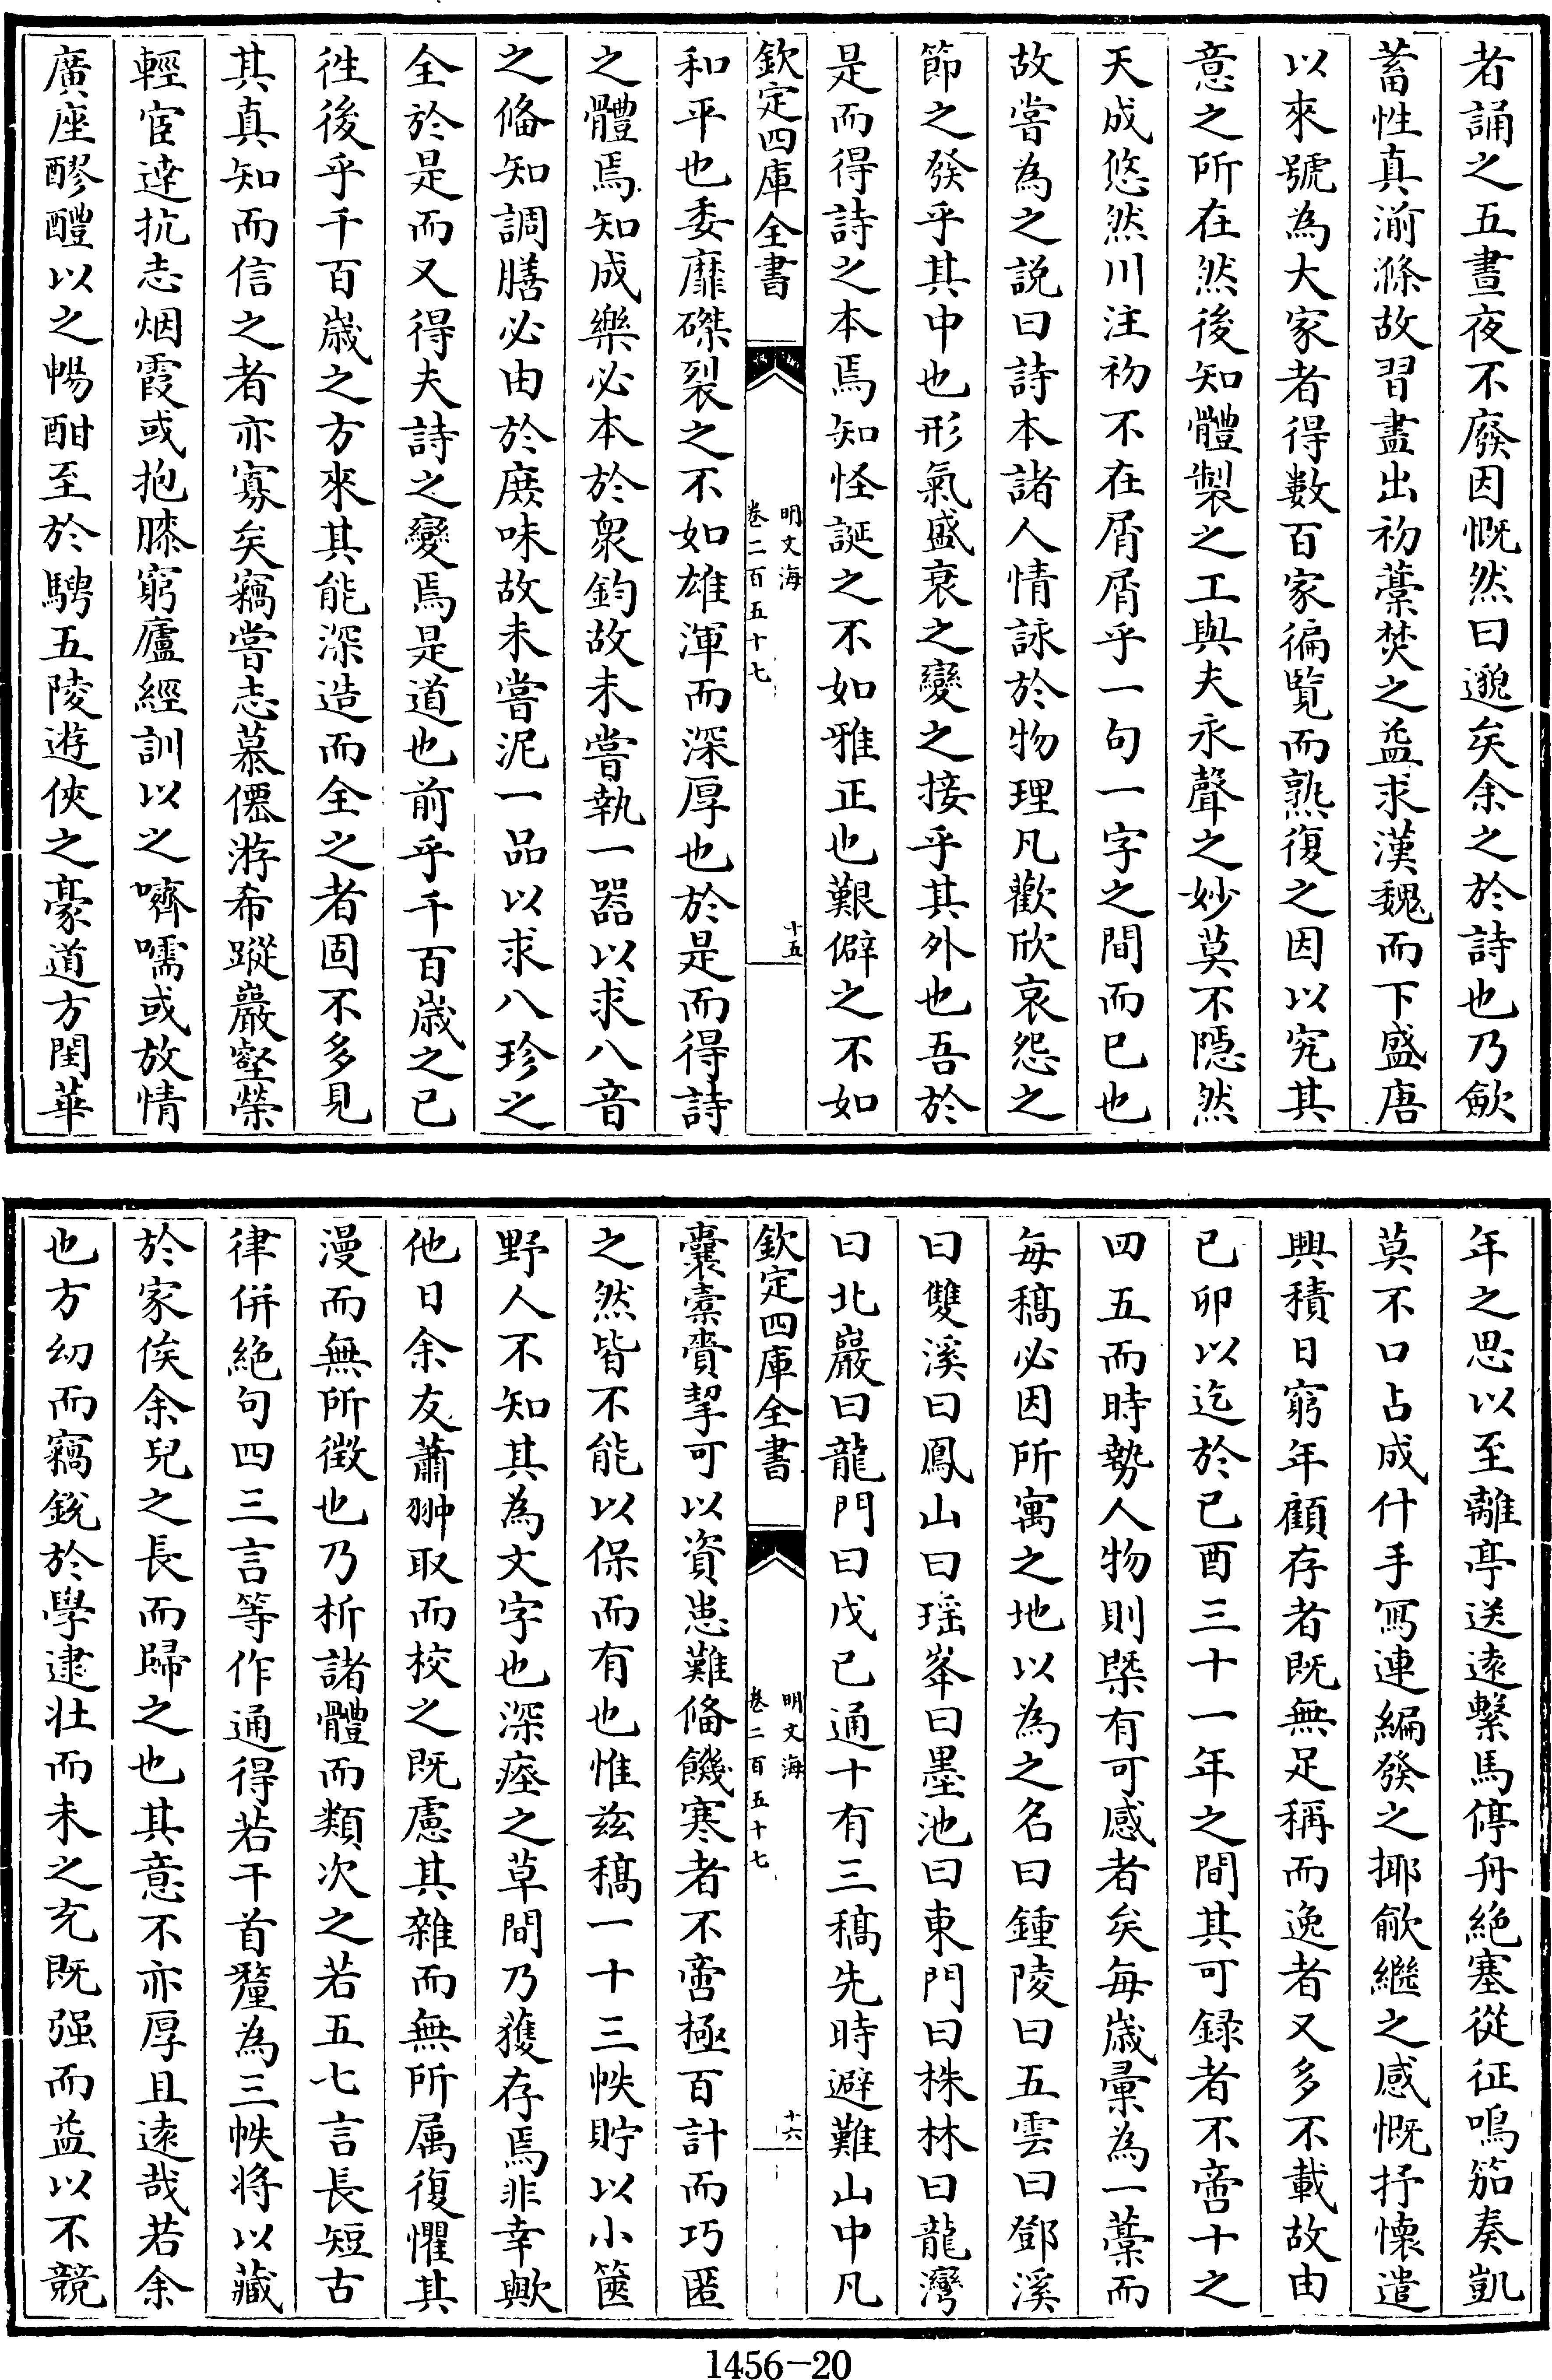 者誦之五晝夜不廢因慨然曰邈矣余之於詩也乃歛
蓄性真湔滌故習盡出初藁焚之益求漢魏而下盛唐
以來號為大家者得數百家徧覽而熟復之因以究其
意之所在然後知體製之工與夫永聲之妙莫不隱然
天成悠然川注初不在屑屑乎一句一字之間而已也
故嘗為之説曰詩本諸人情詠於物理凡歡欣哀怨之
節之發乎其中也形氣盛衰之變之接乎其外也吾於
是而得詩之本焉知怪誕之不如雅正也艱僻之不如
欽定四庫全書
明文海
卷二百五十七
十五
和平也委靡磔裂之不如雄渾而深厚也於是而得詩
之體焉知成樂必本於衆鈞故未嘗執一器以求八音
之備知調膳必由於庶味故未嘗泥一品以求八珍之
全於是而又得夫詩之變焉是道也前乎千百歲之已
徃後乎千百歲之方來其能深造而全之者固不多見
其真知而信之者亦寡矣竊嘗志慕僊游希蹤巖壑榮
輕宦達抗志烟霞或抱膝窮廬經訓以之嚌嚅或放情
廣座醪醴以之暢酣至於騁五陵遊俠之豪道方閨華
年之思以至離亭送遠繫馬停舟絶塞從征鳴笳奏凱
莫不口占成什手寫連編發之揶歈繼之感慨抒懷遣
興積日窮年顧存者既無足稱而逸者又多不載故由
已卯以迄於已酉三十一年之間其可録者不啻十之
四五而時勢人物則槩有可感者矣每歲彙為一藁而
每稿必因所寓之地以為之名曰鍾陵曰五雲曰鄧溪
曰雙溪曰鳳山曰瑶峯曰墨池曰東門曰株林曰龍灣
曰北巖曰龍門曰戊己通十有三稿先時避難山中凡
欽定四庫全書
明文海
卷二百五十七
十六
囊橐賫挈可以資患難備饑寒者不啻極百計而巧匿
之然皆不能以保而有也惟兹稿一十三帙貯以小篋
野人不知其為文字也深瘞之草間乃獲存焉非幸歟
他日余友蕭翀取而校之既慮其雜而無所属復懼其
漫而無所徴也乃析諸體而類次之若五七言長短古
律併絶句四三言等作通得若干首釐為三帙将以藏
於家俟余兒之長而歸之也其意不亦厚且遠哉若余
也方幼而竊鋭於學逮壯而未之充既强而益以不競
1456-20